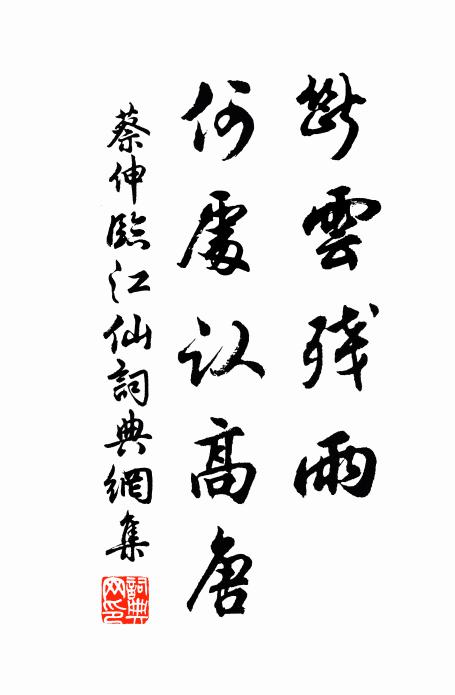 斷雲残雨
何處认高唐
蔡伸臨江仙詞典網集
詞典网印